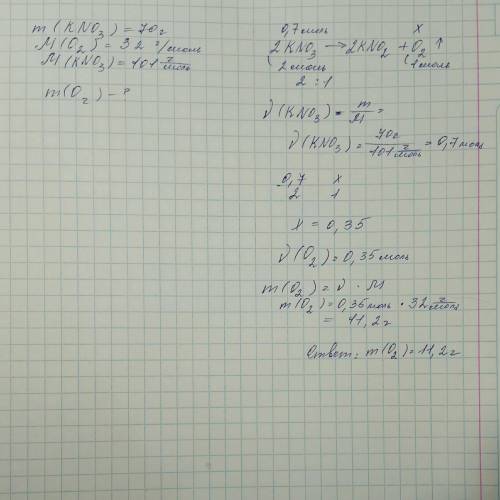 m(KNO₃) = 70г
M(O₂) = 32 г/моль
M(KNO₃) = 101 г/моль
m(O₂) - ?
0,7 моль x
2KNO₃ → 2KNO₂ + O₂ ↑
2 моль 1 моль
2 : 1
ν(KNO₃) = m/M =
ν(KNO₃) = 70г / 101 г/моль = 0,7 моль
0,7 x
2 1
x = 0,35
ν(O₂) = 0,35 моль
m(O₂) = ν · M
m(O₂) = 0,35 моль · 32 г/моль
= 11,2 г
Ответ: m(O₂) = 11,2 г